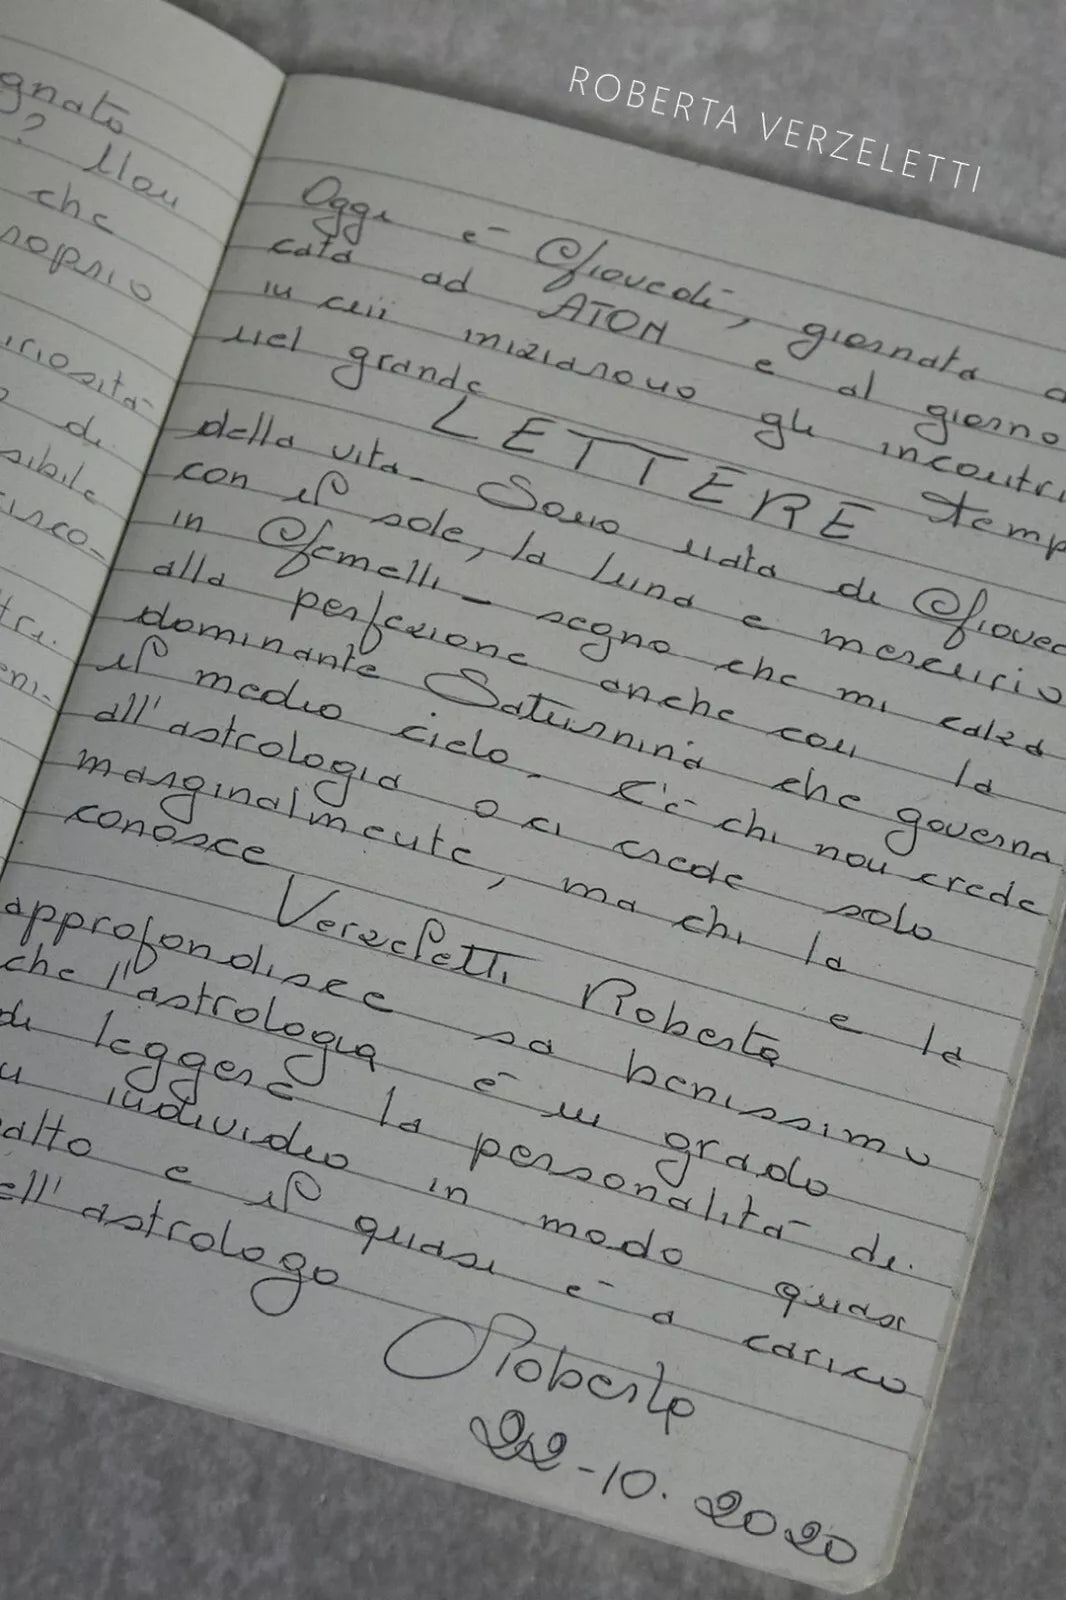 ROBERTA VERZELETTI
gnato
? Man
che
roprio
iriosità
di
sibile
isco-
tri.
eni-
Oggi è Giovedì, giornata
cata ad ATON e al giorno
in cui iniziarono gli incontri
nel grande
LETTERE temp
della vita. Sono nata di Gioved
con il sole, la luna e mercurio
in Gemelli - segno che mi calza
alla perfezione anche con la
dominante Saturnina che governa
il medio cielo. C'è chi non crede
all'astrologia o ci crede solo
marginalmente, ma chi la
conosce
Verzeletti Roberta e la
approfondisce sa benissimo
che l'astrologia è in grado
di leggere la personalità di
u individuo in modo quasi
alto e il quasi è a carico
ell'astrologo
Roberta
22-10.2020